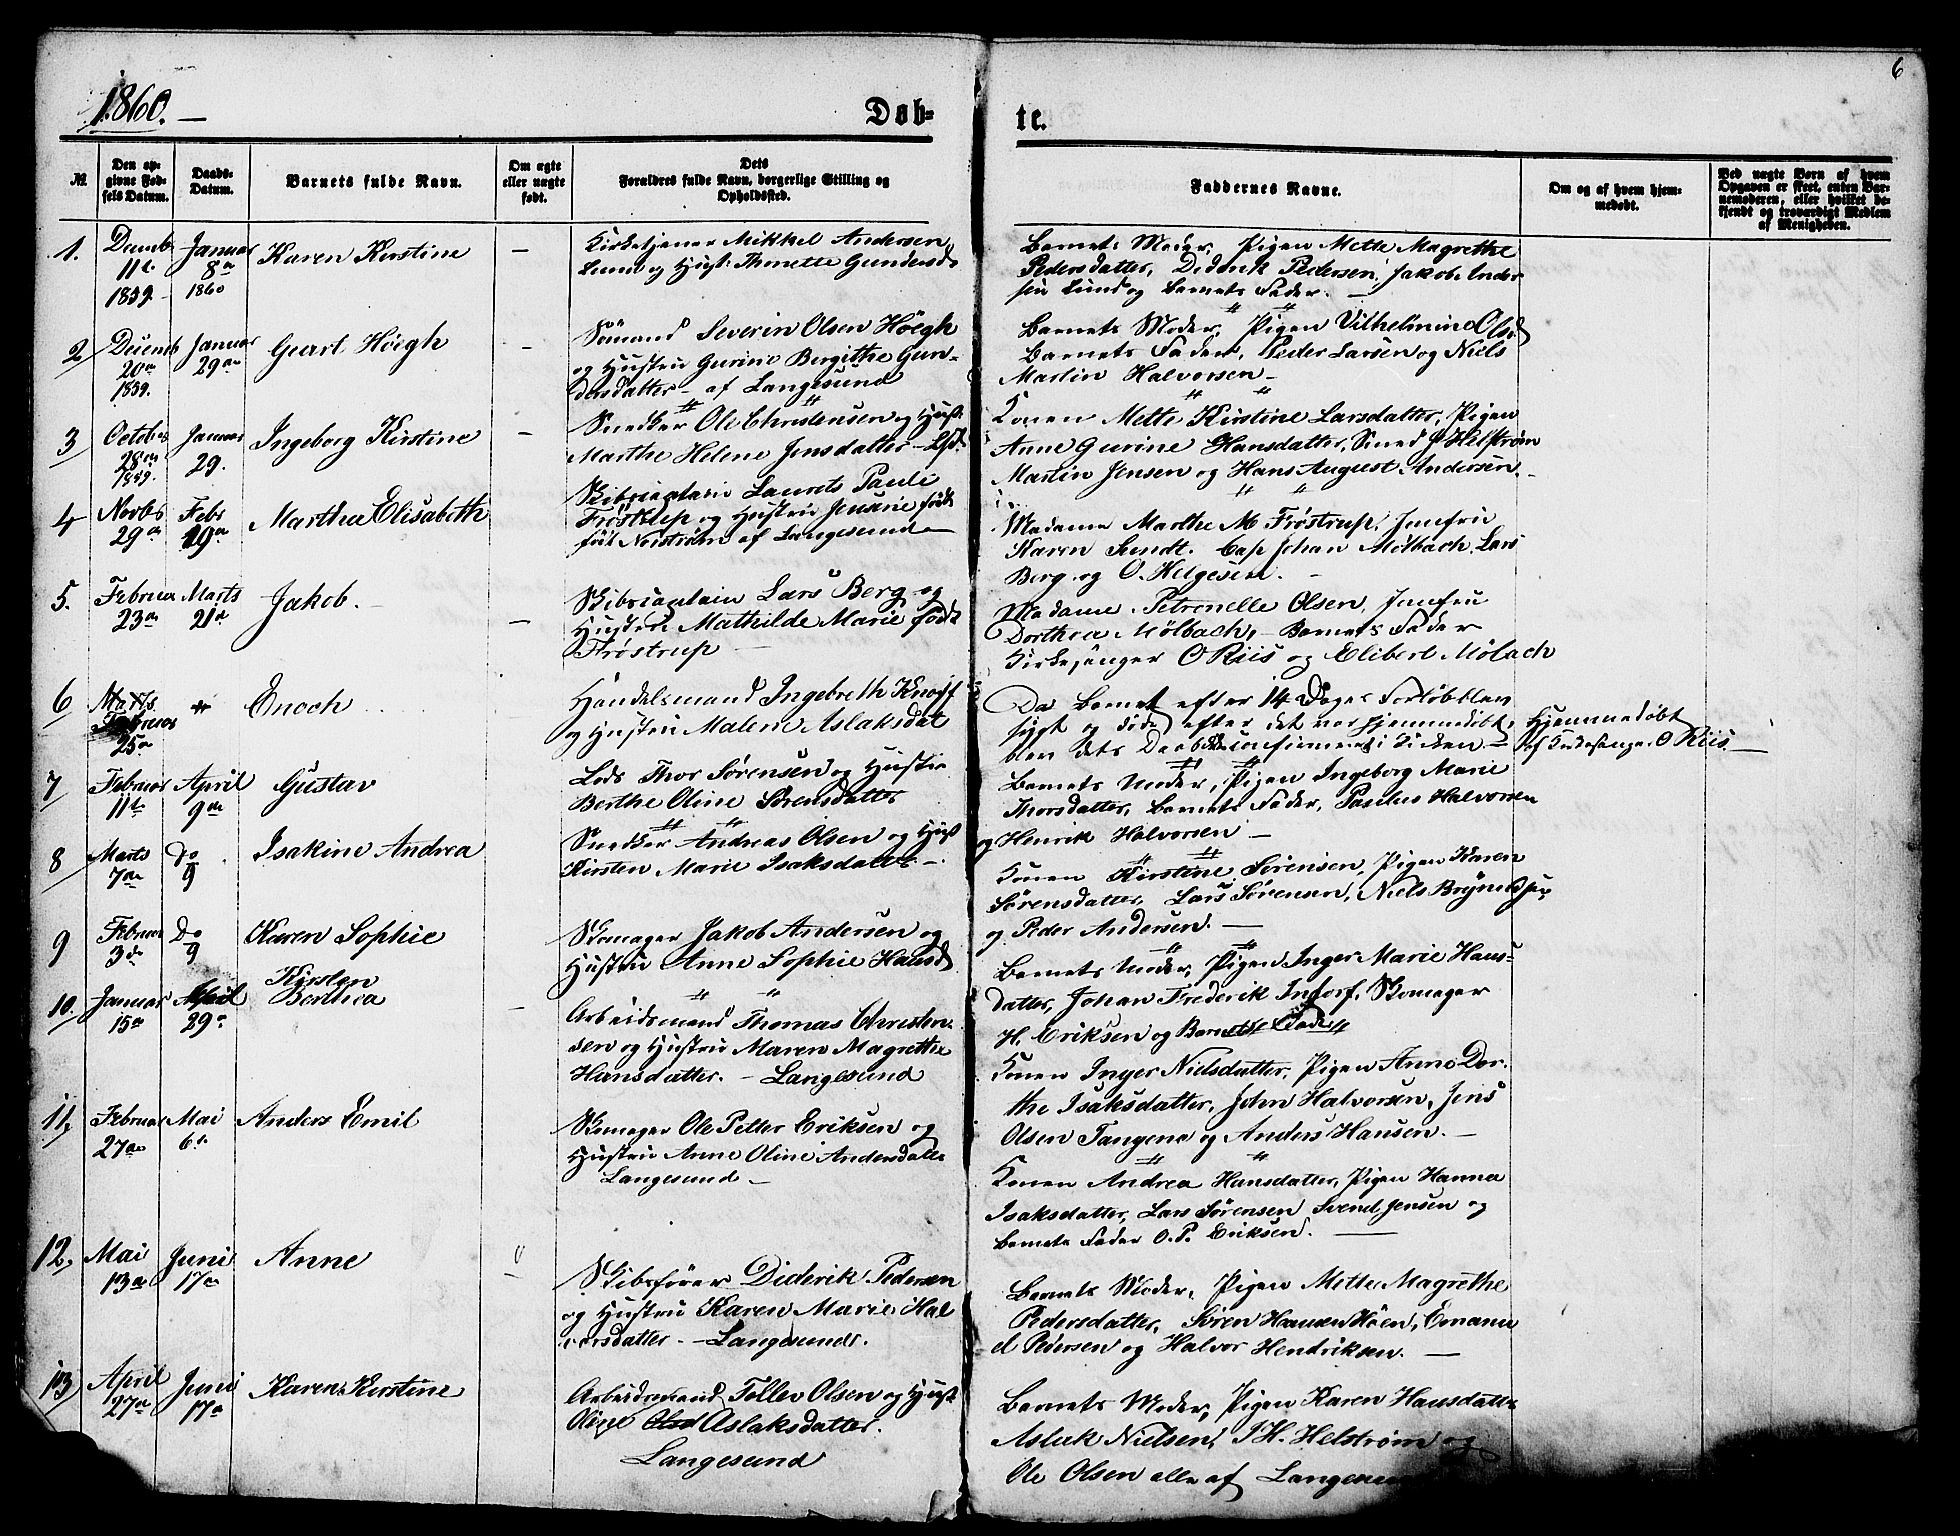 6
1860.
Døb=
te.
№
Den op-
givne Fød-
sels Datum.
Daabs-
Datum.
Barnets fulde Navn.
Om ægte
eller uægte
født.
Dets
Forældres fulde Navn, borgerlige Stilling og
Opholdssted.
Faddernes Navne.
Om og af hvem hjem-
medøbt.
Ved uægte Børn af hvem
Opgaven er skeet, enten Bar-
nemoderen, eller hvilket be-
kjendt og troværdigt Medlem
af Menigheden.
1.
Decemb
11t.
1859.
Januar
8de
1860
Karen Kirstine
—
Kirketjener Mikkel Andersen
Lund og Hust. Thonette Gundersd
Barnets Moder, Pigen Mette Magrethe
Pedersdatter, Diderik Pedersen, Jakob Ander
sen Lund og Barnets Fader. —
2
Decemb
20de
1859.
Januar
29de
Geart Høegh
—
Sömand Severin Olsen Höegh
og Hustru Gurine Bergithe Gun-
dersdatter — af Langesund
Barnets Moder, Pigen Vilhelmine Olsd
Barnets Fader, Peder Larsen og Niels
Martin Halvorsen —
3
October
28de
1859.
Januar
29.
Ingeborg Kirstine
—
Snedker Ole Christensen og Hust.
Marthe Helene Jensdatter — Lgsd.
Konen Mette Kirstine Larsdatter, Pigen
Anne Gurine Hansdatter, Smed J Helstrøm
Martin Jensen og Hans August Andersen. —
4
Novbr
29de
Febr
19de
Marthea Elisabeth
Skibscaptain Laurets Pauli
Frøstrup og Hustru Jensine født
Norstrøm af Langesund —
Madame Marthe M. Frøstrup, Jomfru
Karen Sundt. Cap Johan Mølbach, Lars
Berg og O. Helgesen. —
5.
Februar
23de
Marts
21de
Jakob. —
—
Skibscaptain Lars Berg og
Hustru Mathilde Marie født
Frøstrup —
Madame Petronelle Olsen, Jomfru
Dorthea Mölbach, — Barnets Fader
Kirkesanger O Riis og Elibert Mölbach
6
Marts
Februar
25de
Enoch
Handelsmand Ingebreth Knoff
og Hustru Malene Aslaksdat
Da Barnet efter 14 Dages Forløb blev
sygt og døde efter det var hjemmedøbt,
blev dets Daab ikke confirmeret i Kirken. —
Hjemmedøbt
af Kirkesanger O Riis —
7
Februar
11t.
April
9de
Gustav
Lods Thor Sørensen og Hustru
Berthe Oline Sörensdatter
Barnets Moder, Pigen Ingeborg Marie
Thorsdatter, Barnets Fader, Paulus Halvorsen
og Henrik Halvorsen —
8
Marts
7de
Do
9
Isakine Andrea
Snedker Andreas Olsen og Hust
Kirsten Marie Isaksdatter —.
Konen Kirstine Sørensen, Pigen Karen
Sørensdatter, Lars Sørensen, Niels Brynildsen
og Peder Andersen. —
9
Februar
3de
Do
9
Karen Sophie
Skomager Jakob Andersen og
Hustru Anne Sophie Hansd
Barnets Moder, Pigen Inger Marie Hans-
datter, Johan Frederik Indorf, Skomager
H. Eriksen og Barnets Fader
10.
Januar
15de
April
29de
Kirsten
Berthea
—
Arbeidsmand Thomas Christen-
sen og Hustru Maren Magrethe
Hansdatter. — Langesund
Konen Inger Nielsdatter, Pigen Anne Dor-
the Isaksdatter, John Halvorsen, Jens
Olsen Tangene og Anders Hansen. —
11,
Februar
27de
Mai
6t.
Anders Emil
Skomager Ole Petter Eriksen og
Hustru Anne Oline Andersdatte
Langesund —
Konen Andrea Hansdatter, Pigen Hanna
Isaksdatter, Lars Sørensen Svend Jensen og
Barnets Fader O. P. Eriksen. —
12,
Mai
13de
Juni
17de
Anne
Skibsfører Diderik Pedersen
og Hustru Karen Marie Hal
vorsdatter. — Langesund.
Barnets Moder, Pigen Mette Magrethe
Pedersdatter, Sören Hansen Höen, Emanu
el Pedersen og Halvor Hendriksen. —
13
April
27de
Juni
17de
Karen Kirstine
Arbeidsmand Tellev Olsen og Hust
Oline Olsd Aslaksdatter.
Langesund
Barnets Moder, Pigen Karen Hansdatte
Aslak Nielsen, J H. Helstrøm og
Ole Olsen alle af Langesund